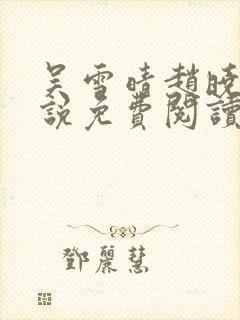 吴雪晴趙曉
說免費閱讀
鄧麗慧